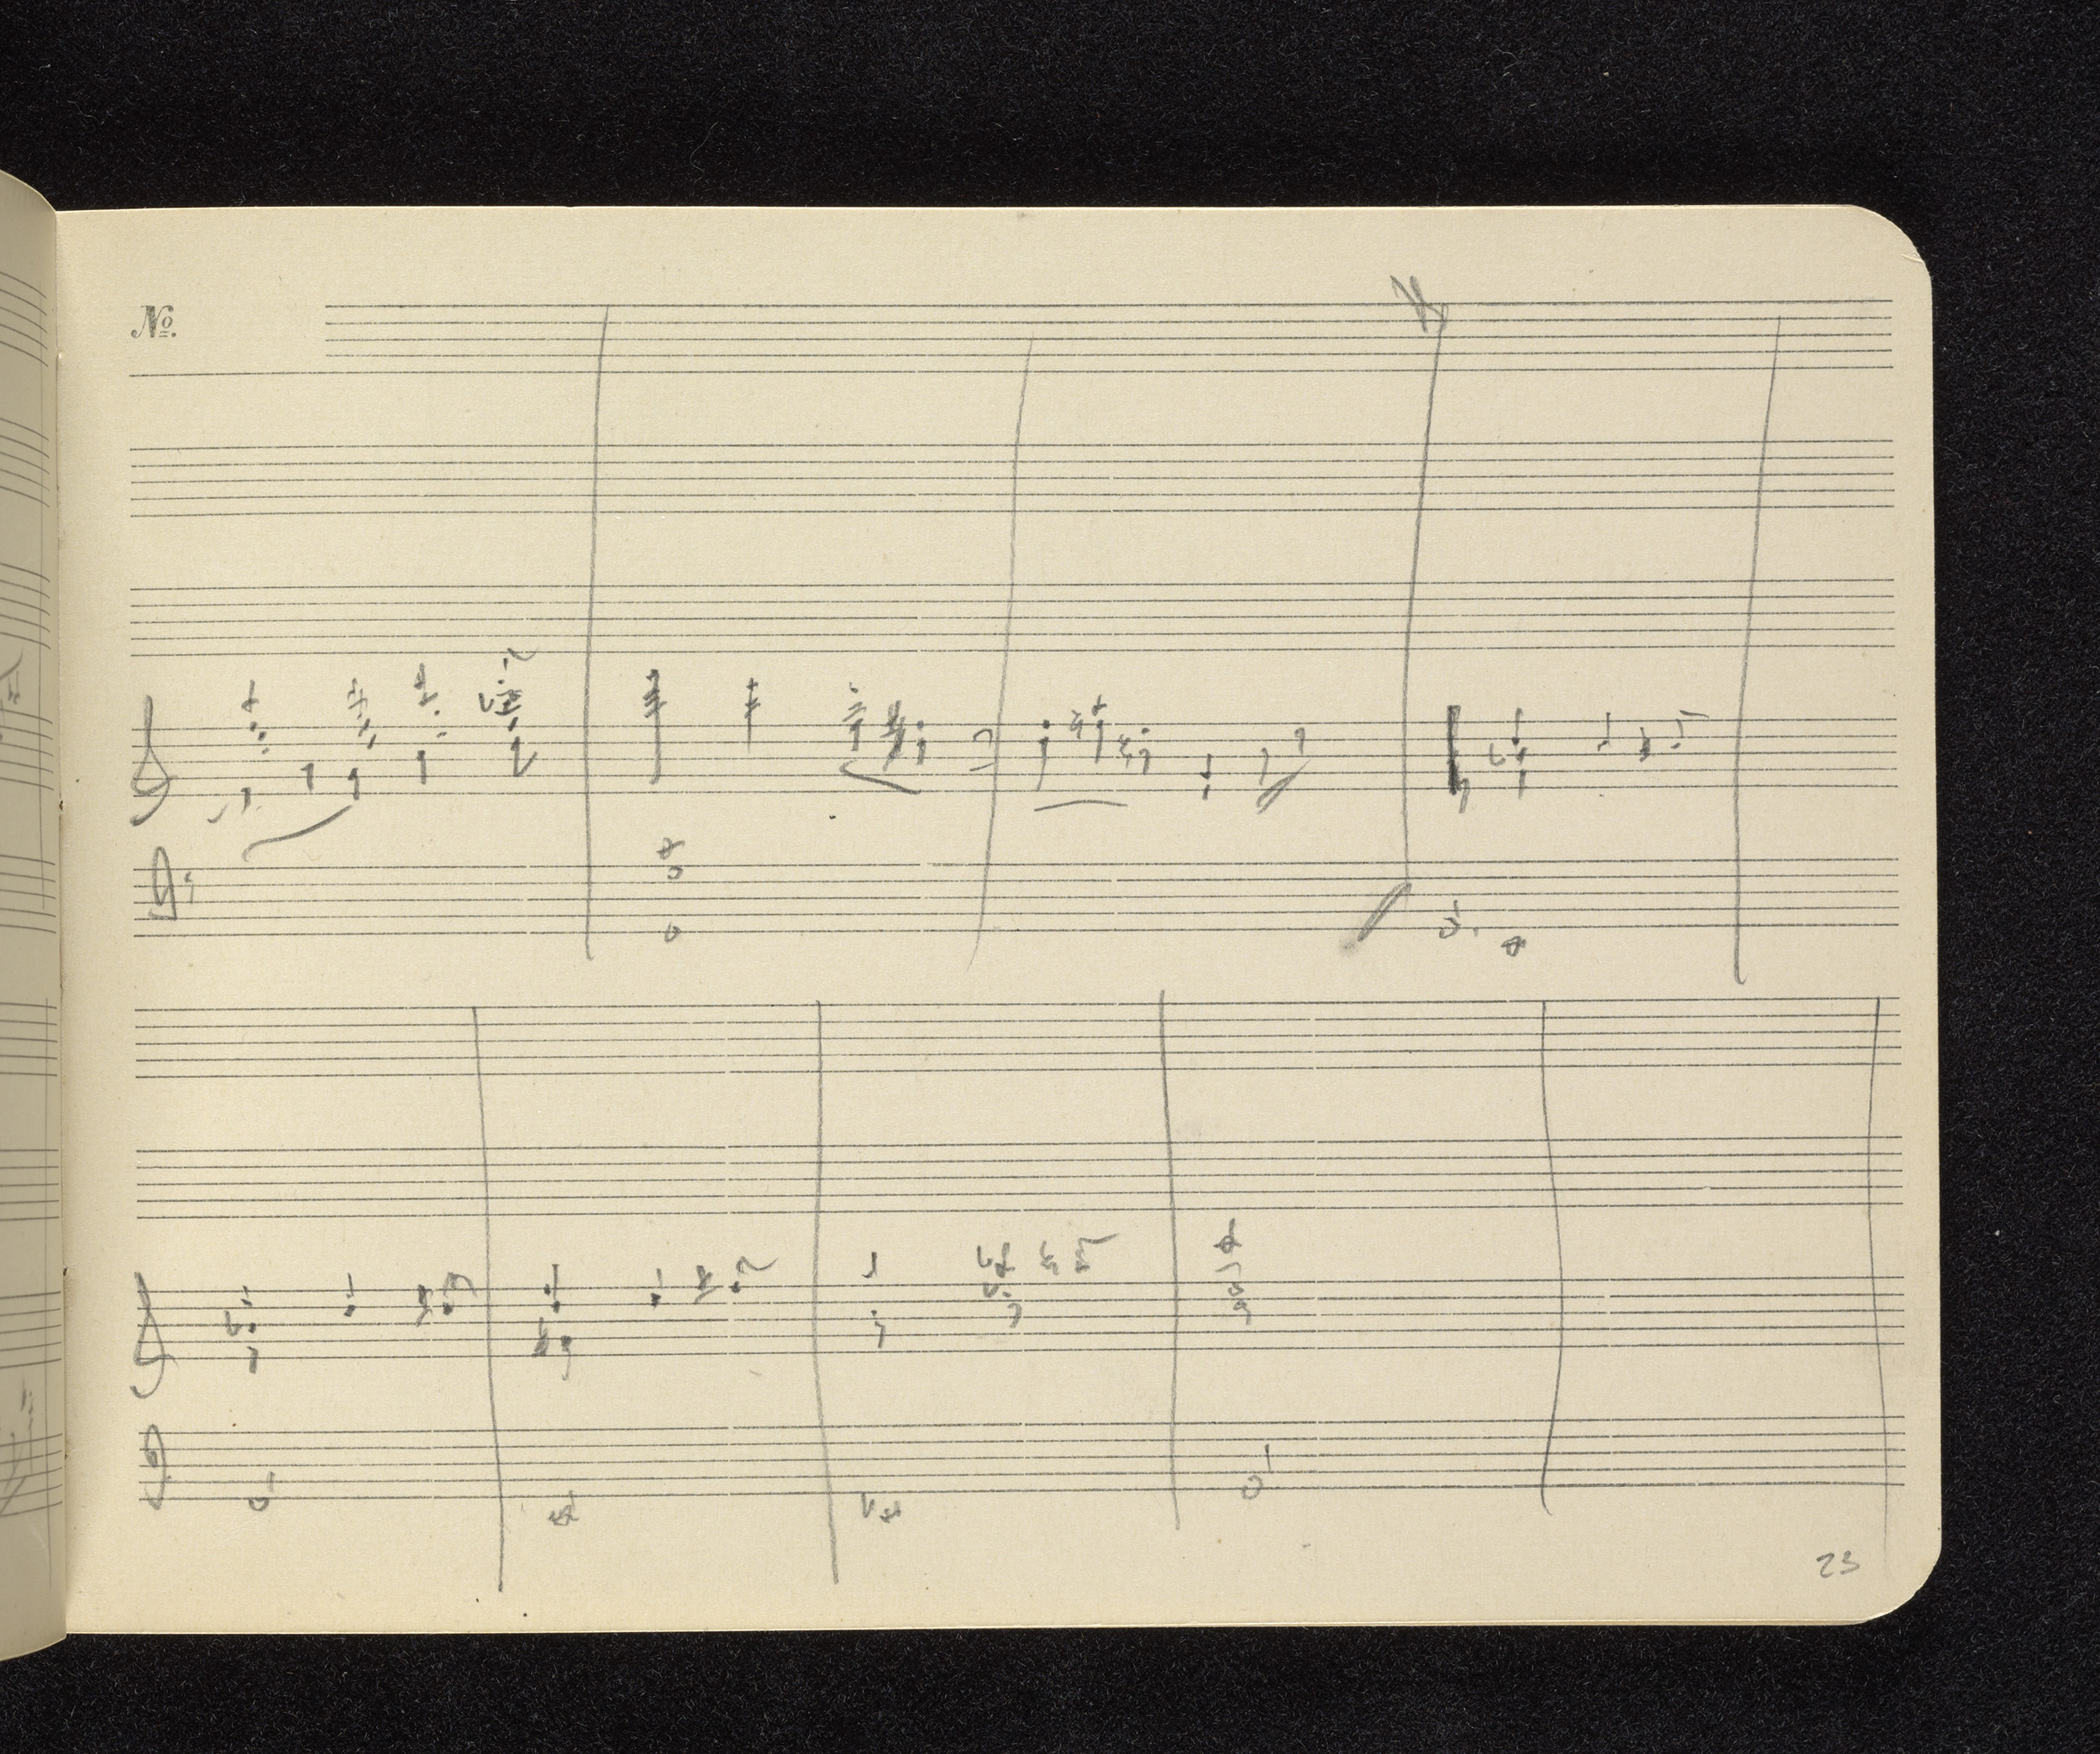 №.
23